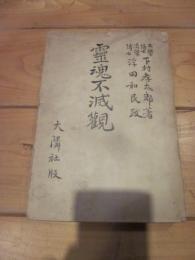 文學博士
下村孝太郎著
法學博士
浮田和民跋
靈魂不滅觀
大隣社版